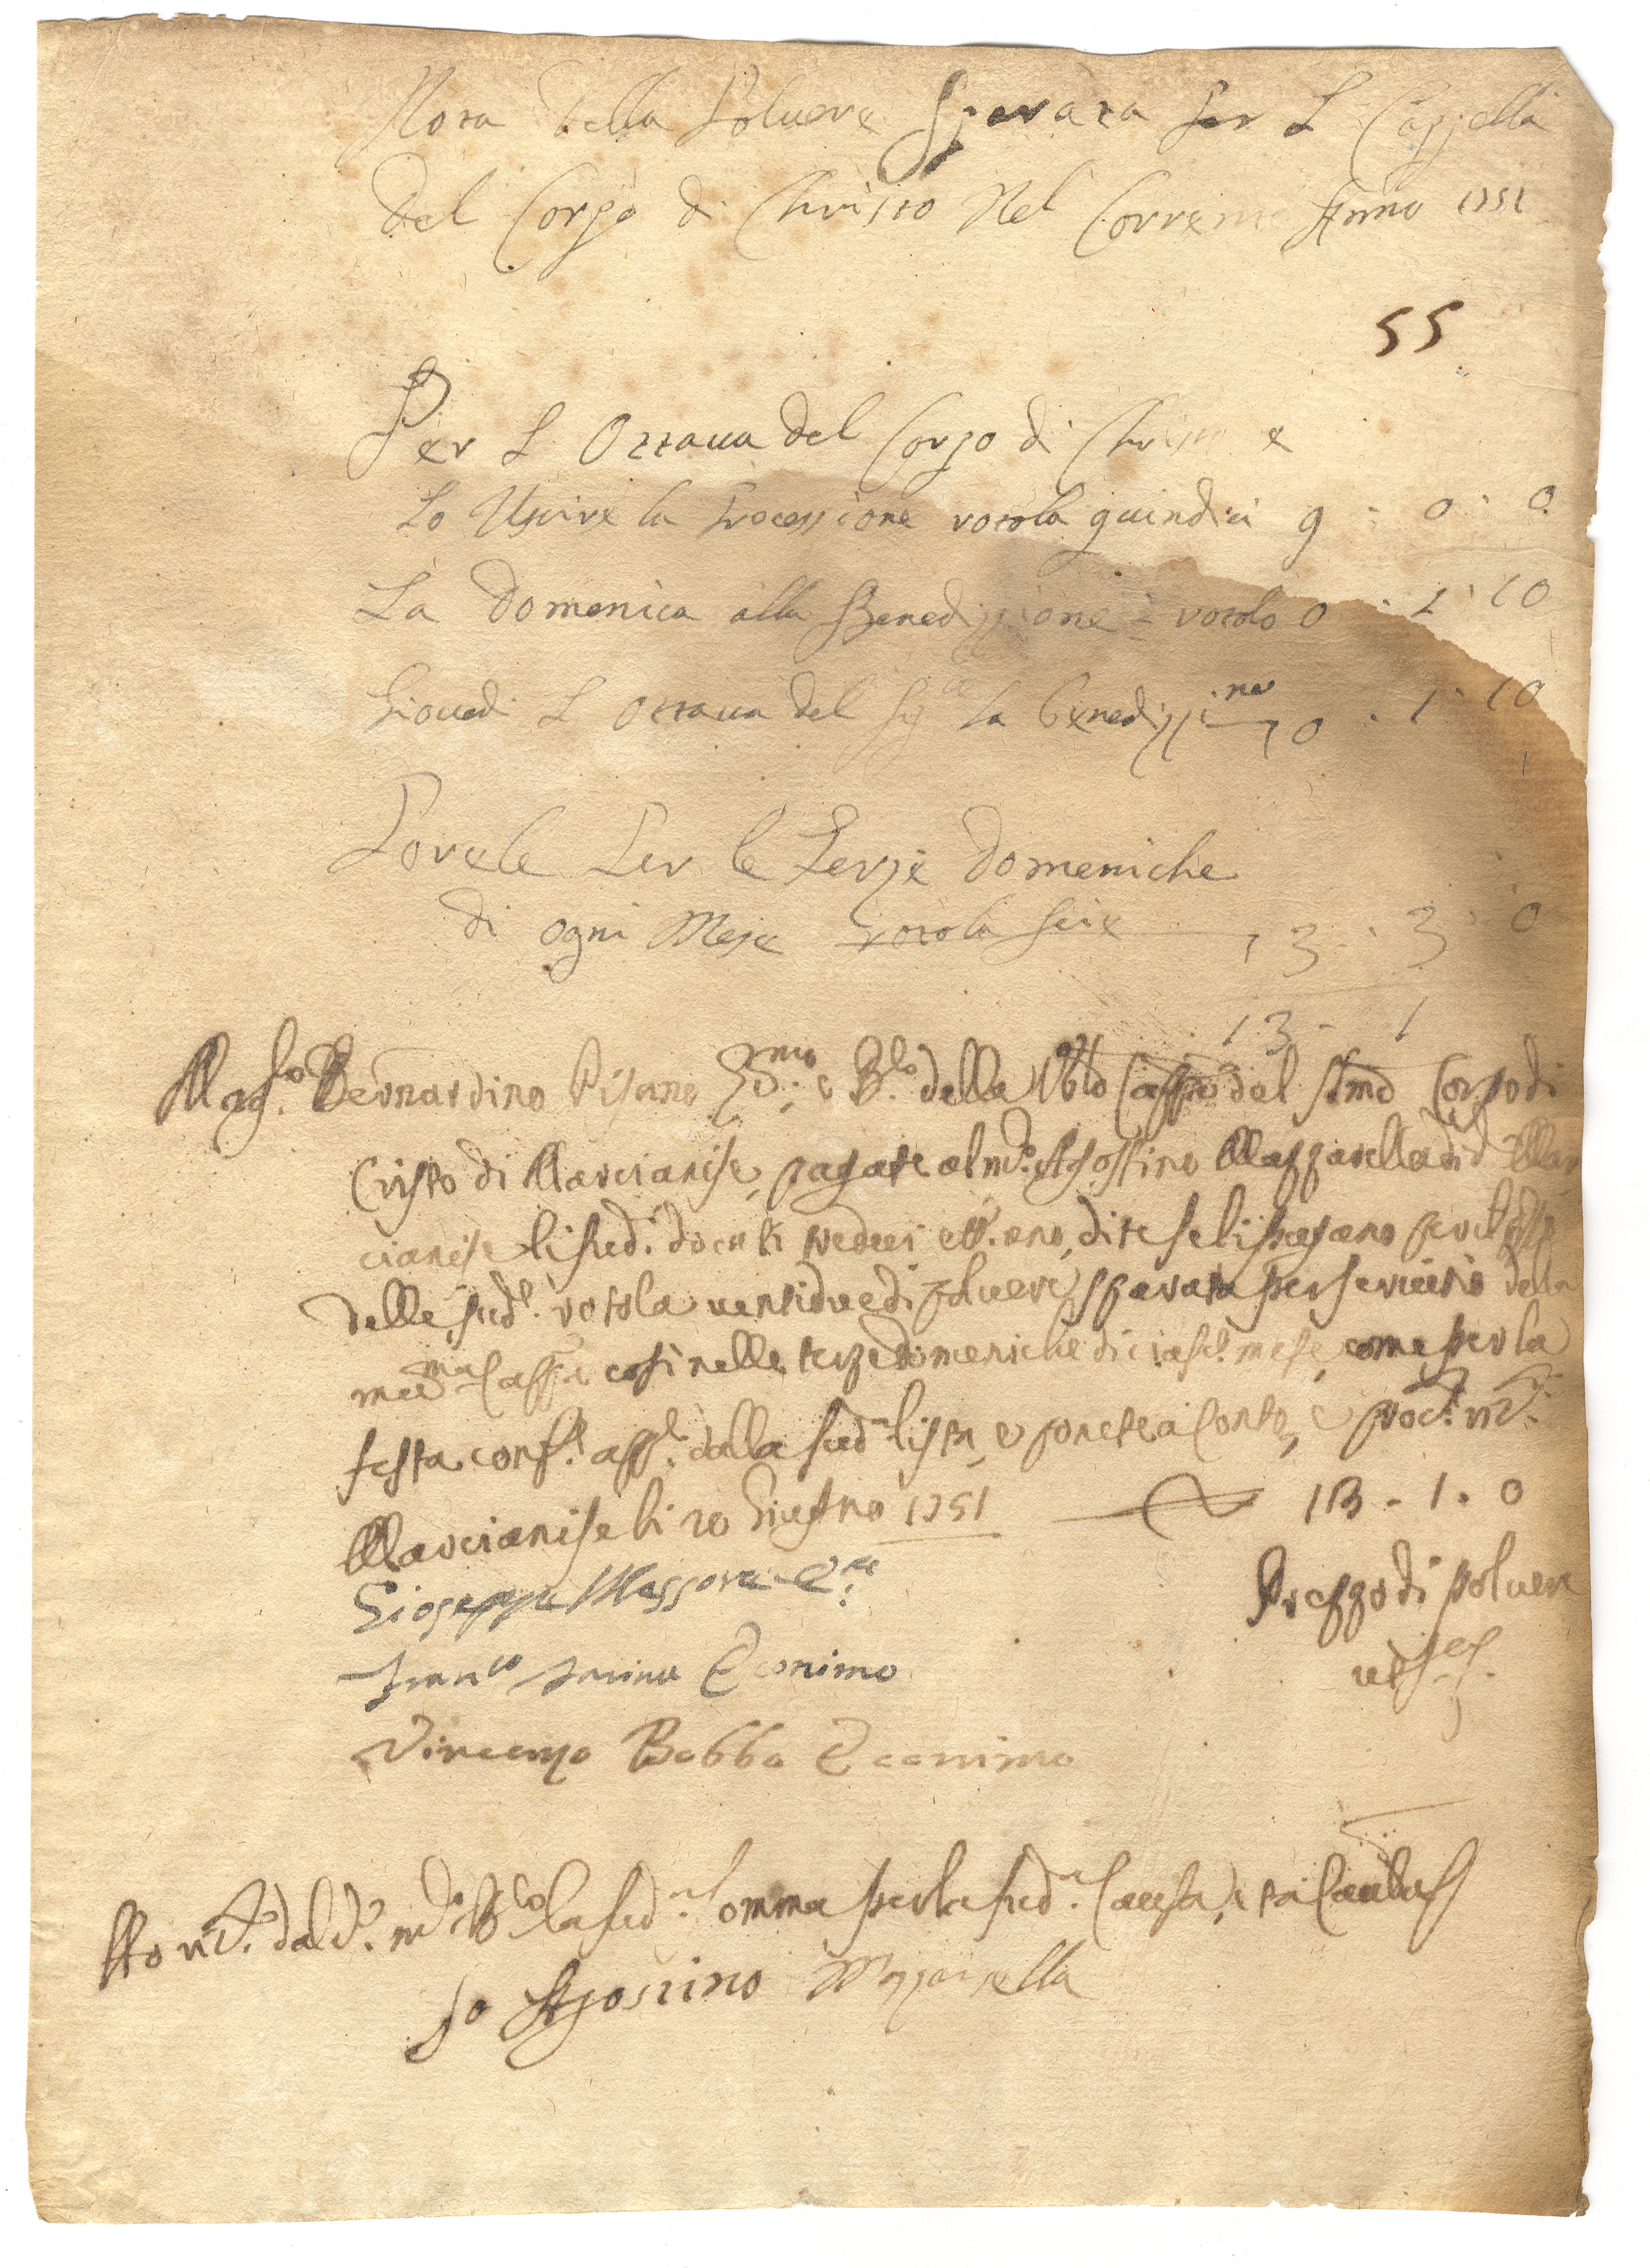 Nota della Poluere Sparata per L Cappella
del Corpo di Christo Nel Corrente Anno 1751
55
Per L Ottaua del Corpo di Christo e
Lo Uscire la Processione rotola quindici 9 : 0 : 0
La Domenica alla Benedizzione 1 rotolo 0 . 1 : 10
Giouedi L Ottaua del la Benedizzine 0 . 1 : 10
Per le Terze Domeniche
di ogni Mese rotola seie 3 : 3 : 0
13 - 1
Mag.co Bernardino Pisano della del Corpo di
Cristo di Marcianise, pagate al m.co Agostino Mazzarella di d.a Mar
cianise li sud.i docati tredeci et uno, dite seli pagano per il
delle sud.e rotola uentidue di poluere sparata per seruitio della
med.ma Capp.a cosi nelle terze Domeniche di ciasc.o mese, come per la
festa conf.e app.e dalla sud.a lista, e ponete a Conto,
Marcianise li 20 Giugno 1751 13 - 1 . 0
Giuseppe Messore
Prezzo di poluere
Fran.co Economo
Vincenzo Bobbo Economo
Ho dal d.o m.co la sud.a somma per la sud.a Causa,
Io Agostino Mazzarella